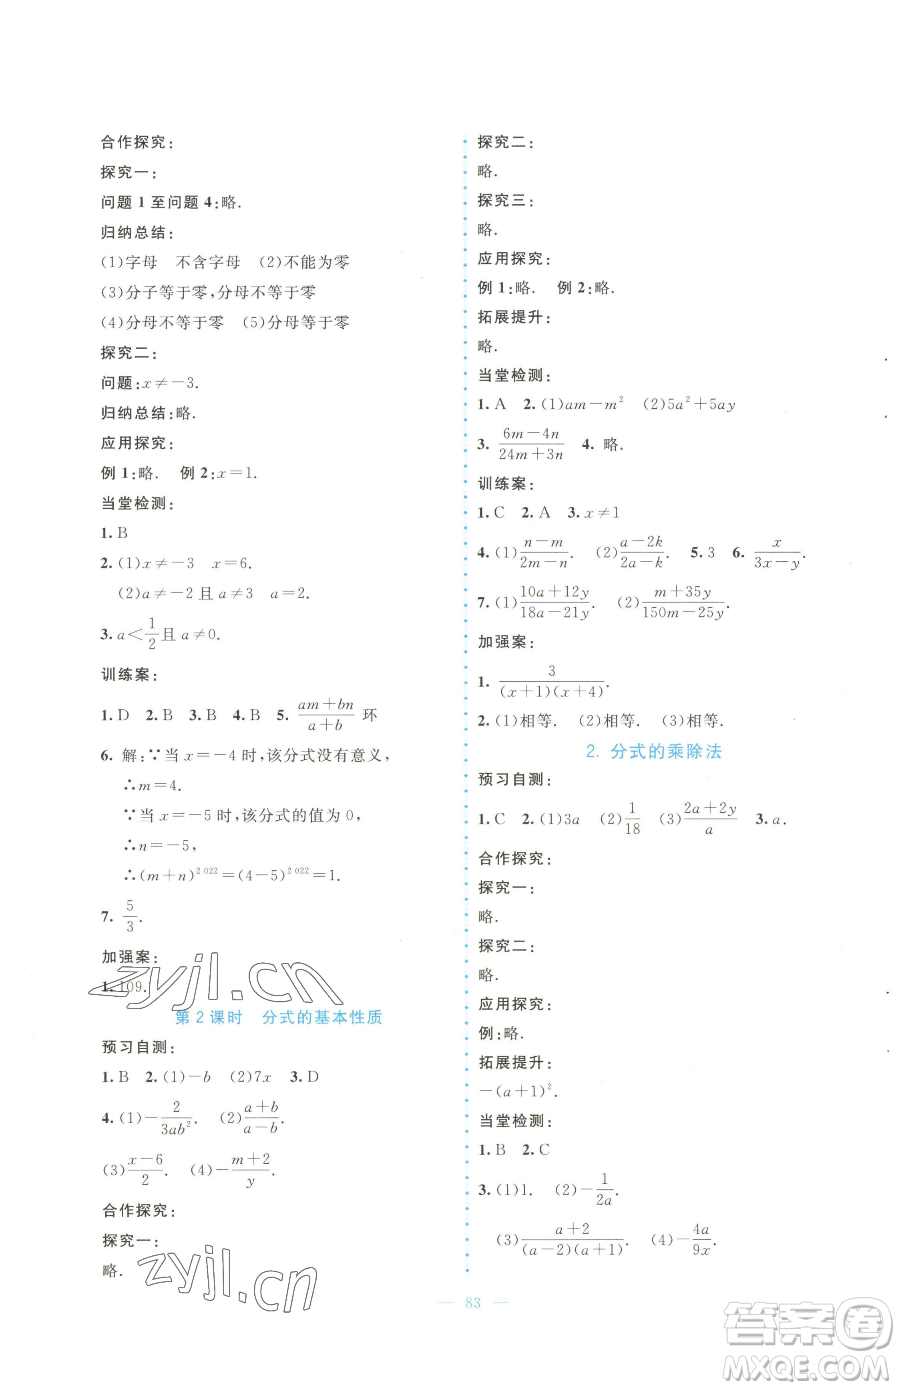 合作探究:
探究一:
问题 1 至问题 4:略.
归纳总结:
(1)字母　不含字母　(2)不能为零
(3)分子等于零,分母不等于零
(4)分母不等于零　(5)分母等于零
探究二:
问题:x≠-3.
归纳总结:略.
应用探究:
例 1:略.　例 2:x=1.
当堂检测:
1. B
2. (1)x≠-3　x=6.
(2)a≠-2 且 a≠3　a=2.
3. a<1/2且 a≠0.
训练案:
1. D　2. B　3. B　4. B　5. (am+bn)/(a+b) 环
6. 解:∵当 x=-4 时,该分式没有意义,
∴m=4.
∵当 x=-5 时,该分式的值为 0,
∴n=-5,
∴(m+n)^2022=(4-5)^2022=1.
7. 5/3.
加强案:
1. 109.
第 2 课时　分式的基本性质
预习自测:
1. B　2. (1)-b　(2)7x　3. D
4. (1)-2/(3ab²).　(2)(a+b)/(a-b).
(3)(x-6)/2.　(4)-(m+2)/y.
合作探究:
探究一:
略.
探究二:
略.
探究三:
略.
应用探究:
例 1:略.　例 2:略.
拓展提升:
略.
当堂检测:
1. A　2. (1)am-m²　(2)5a²+5ay
3. (6m-4n)/(24m+3n)　4. 略.
训练案:
1. C　2. A　3. x≠1
4. (1)(n-m)/(2m-n).　(2)(a-2k)/(2a-k).　5. 3　6. x/(3x-y).
7. (1)(10a+12y)/(18a-21y).　(2)(m+35y)/(150m-25y).
加强案:
1. 3/((x+1)(x+4)).
2. (1)相等.　(2)相等.　(3)相等.
2. 分式的乘除法
预习自测:
1. C　2. (1)3a　(2)1/18　(3)(2a+2y)/a　3. a.
合作探究:
探究一:
略.
探究二:
略.
应用探究:
例:略.
拓展提升:
-(a+1)².
当堂检测:
1. B　2. C
3. (1)1.　(2)-1/(2a).
(3)(a+2)/((a-2)(a+1)).　(4)-4a/(9x).
— 83 —
zyjl.cn
zyjl.cn
答案圈
MXQE.COM